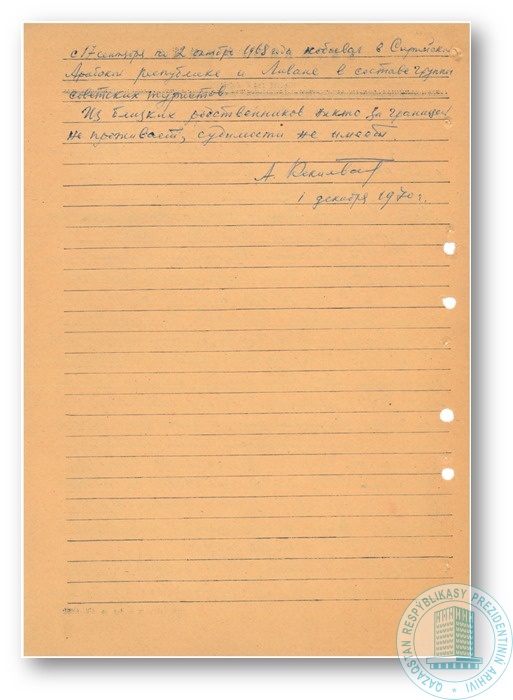 с 17 сентября по 2 октября 1968 года побывал в Сирийской
Арабской республике и Ливане в составе группы
советских туристов.
Из близких родственников никто за границей
не проживает, судимости не имеют.
А.
1 декабря 1970 г.
QAZAQSTAN RESPÝBLIKASY PREZIDENTININ ARHIVI